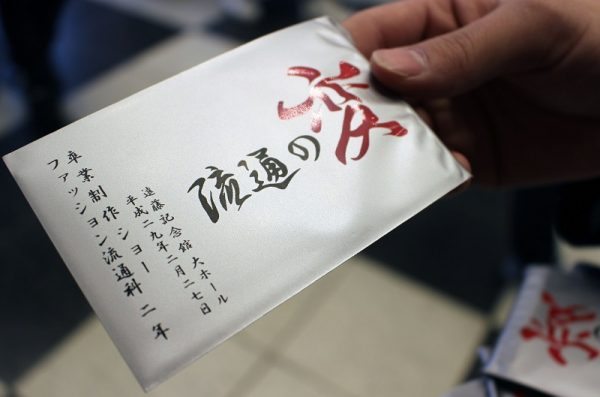 流通の変
遠藤記念館 大ホール
平成二九年二月二七日
卒業制作ショー
ファッション流通科 二年